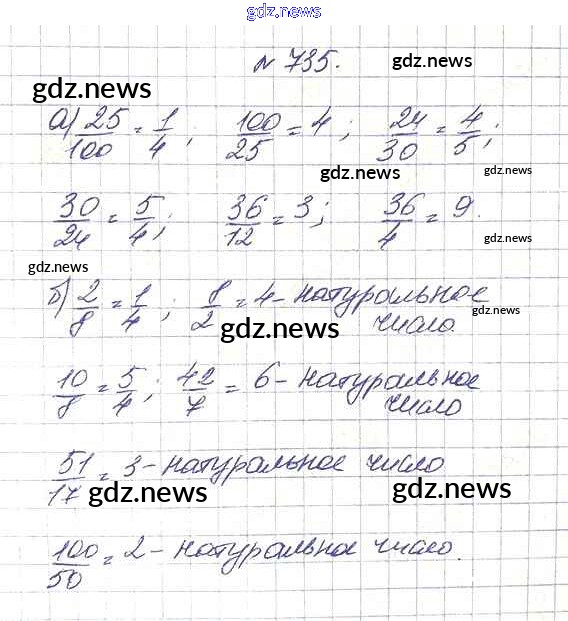 gdz.news
№ 735.
gdz.news
gdz.news
а) 25/100 = 1/4; 100/25 = 4; 24/30 = 4/5;
gdz.news
gdz.news
30/24 = 5/4; 36/12 = 3; 36/4 = 9.
gdz.news
gdz.news
б) 2/8 = 1/4; 8/2 = 4 - натуральное
число.
gdz.news
gdz.news
10/8 = 5/4; 42/7 = 6 - натуральное
число
51/17 = 3 - натуральное число
gdz.news
gdz.news
100/50 = 2 - натуральное число.